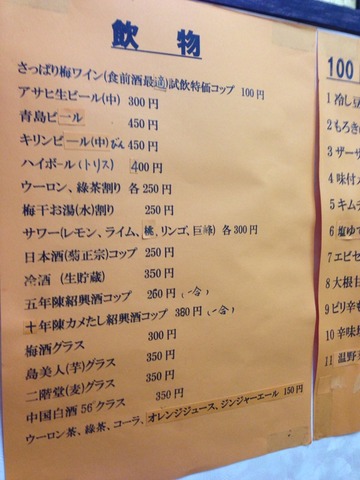 飲物
さっぱり梅ワイン(食前酒最適)試飲特価コップ 100円
アサヒ生ビール(中) 300円
青島ビール 450円
キリンビール(中)びん 450円
ハイボール(トリス) 400円
ウーロン、緑茶割り 各250円
梅干お湯(水)割り 250円
サワー(レモン、ライム、桃、リンゴ、巨峰) 各300円
日本酒(菊正宗)コップ 250円
冷酒 (生貯蔵) 350円
五年陳紹興酒コップ 260円(一合)
十年陳カメだし紹興酒コップ 380円(一合)
梅酒グラス 300円
島美人(芋)グラス 350円
二階堂(麦)グラス 350円
中国白酒56°グラス 350円
ウーロン茶、緑茶、コーラ、オレンジジュース、ジンジャーエール 150円
100
1 冷し豆
2 もろき
3 ザーサ
4 味付
5 キムチ
6 塩ゆで
7 エビセ
8 大根
9 ピリ辛も
10 辛味
11 温野